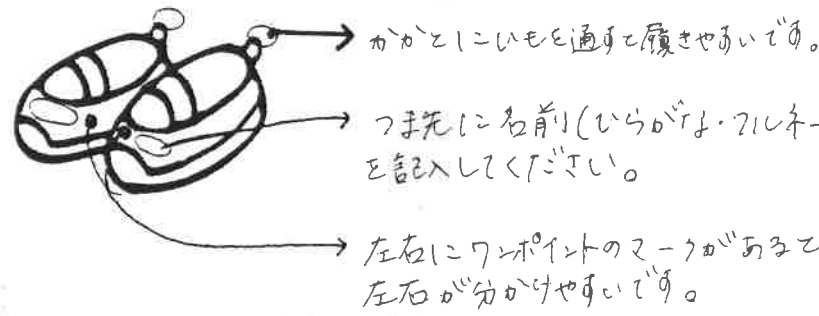 かかとにひもを通すと履きやすいです。
つま先に名前(ひらがな・フルネー
を記入してください。
左右にワンポイントのマークがあると
左右が分かりやすいです。